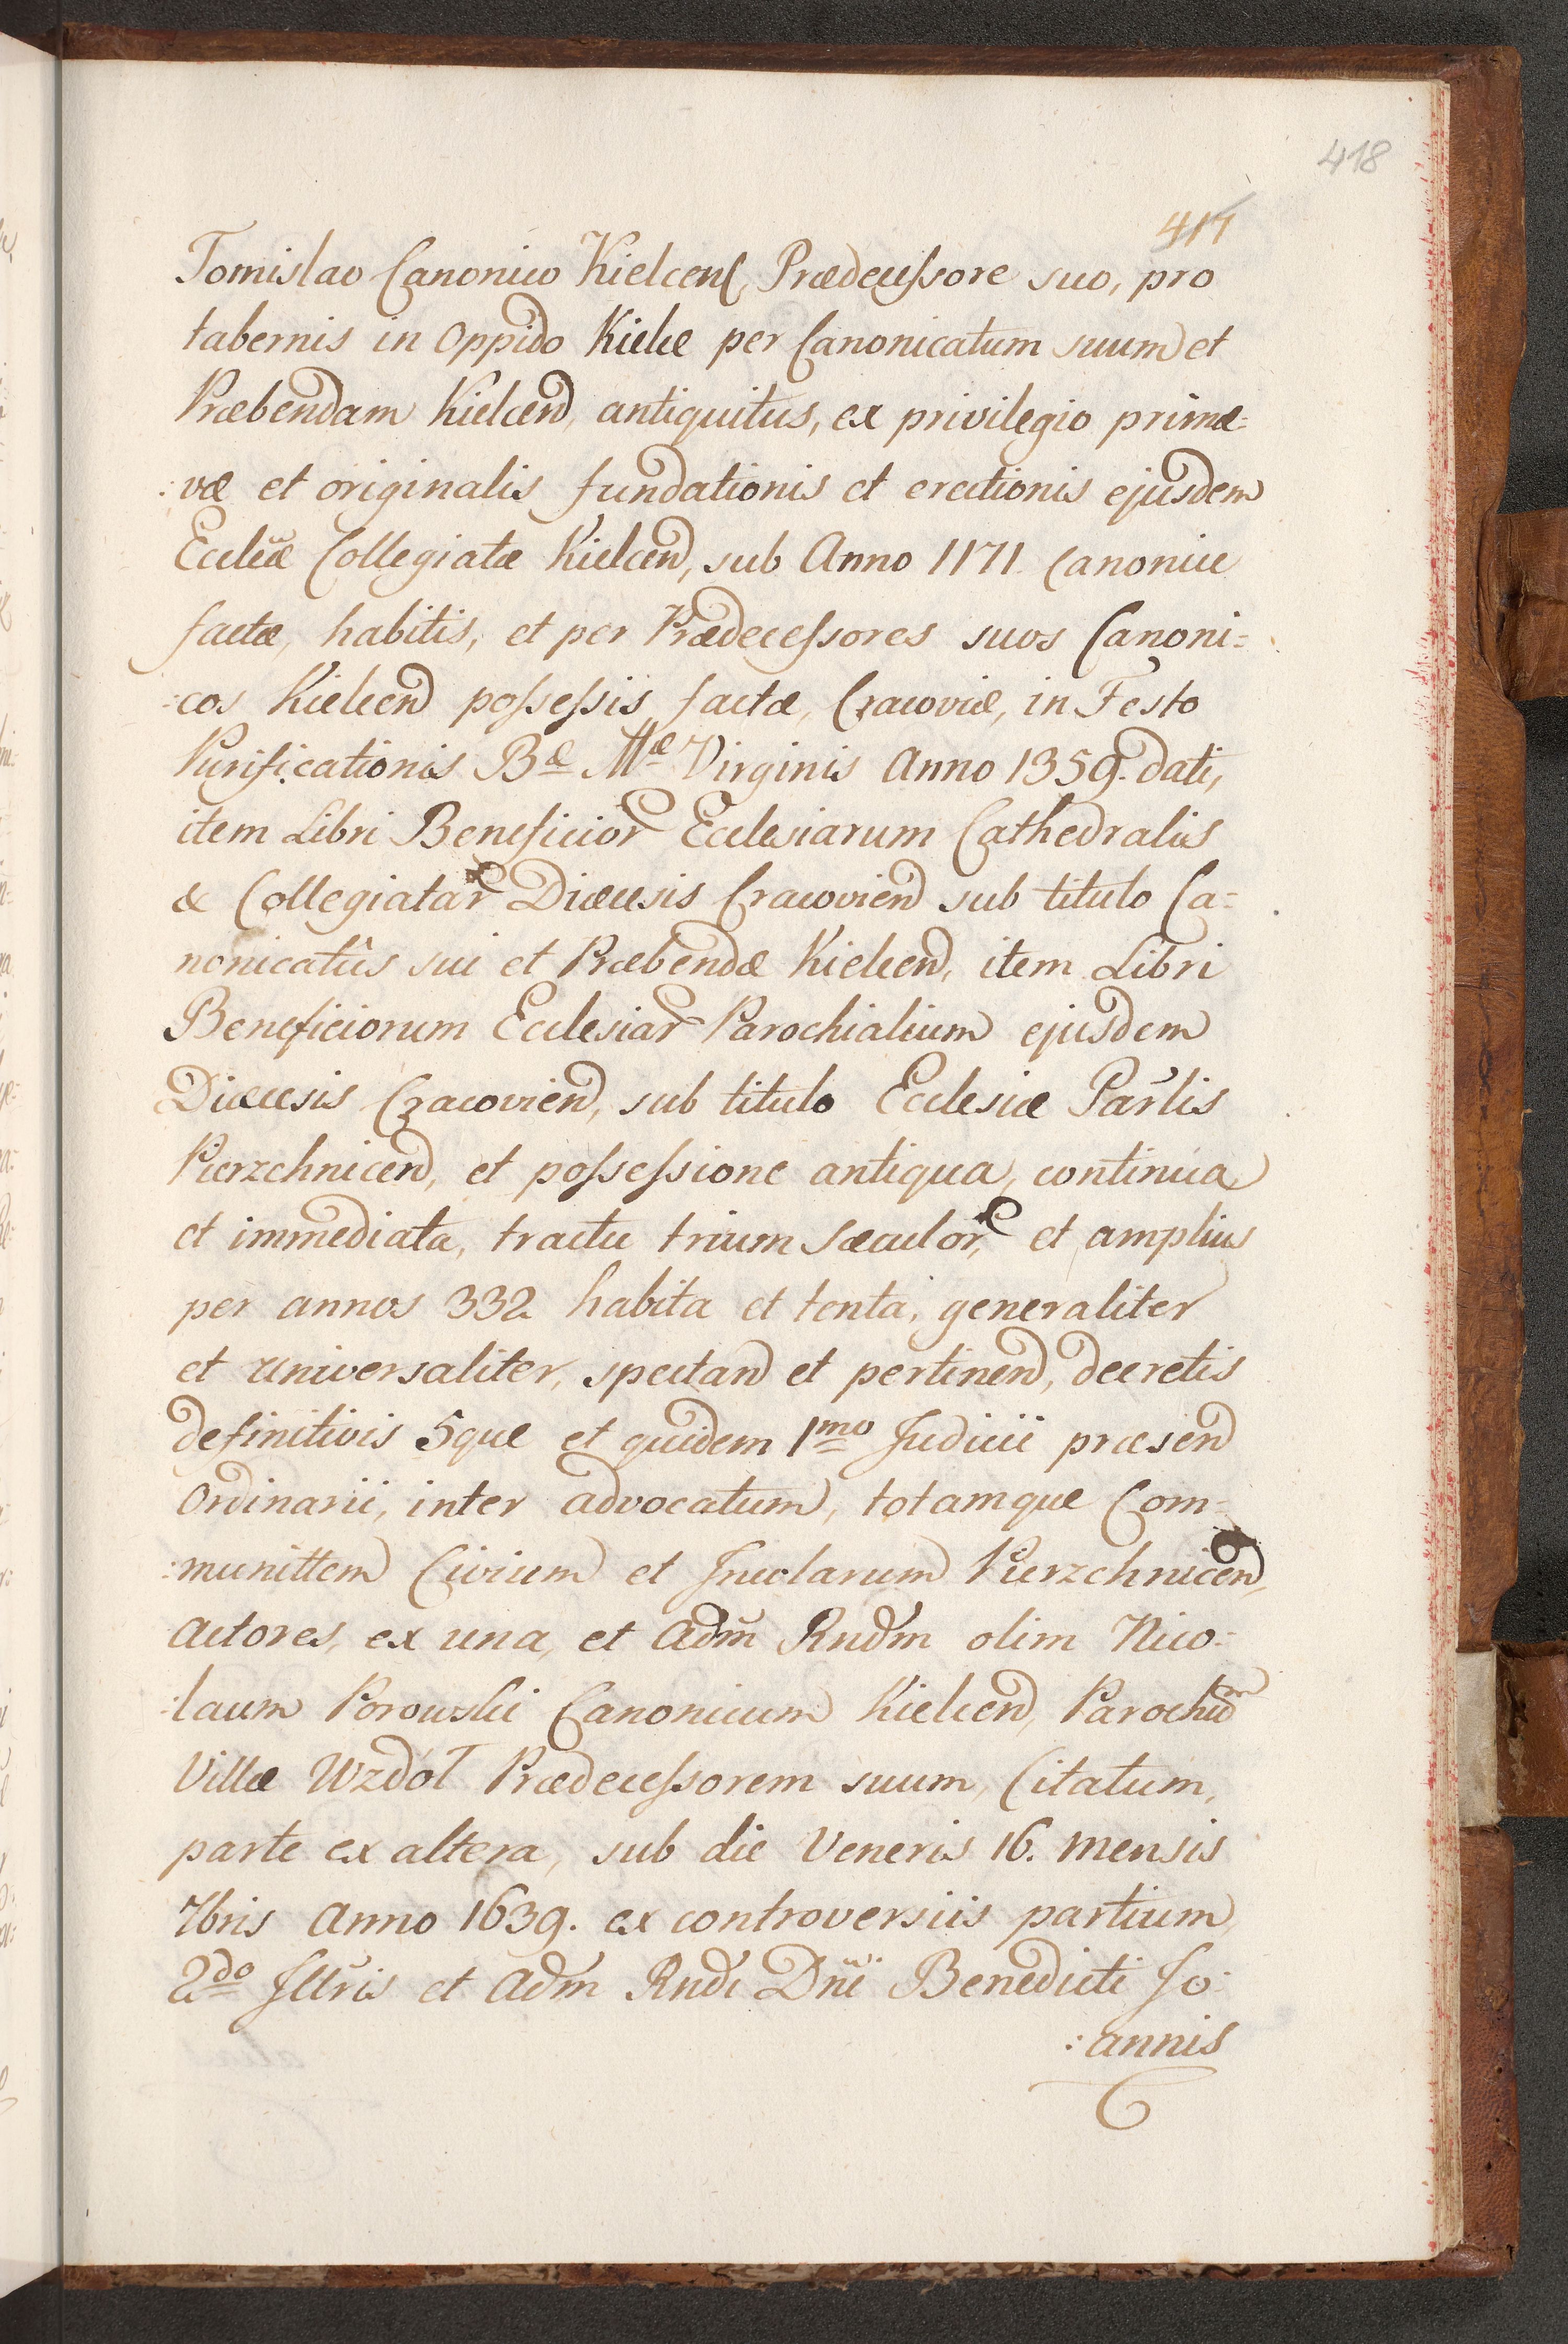 418
417
Tomislao Canonico Kielcens, Prædecessore suo, pro
tabernis in Oppido Kielce per Canonicatum suum et
Præbendam Kielcen, antiquitus, ex privilegio primæ=
:væ et originalis fundationis et erectionis ejusdem
Eccl̃iæ Collegiatæ Kielcen, sub Anno 1171 Canonice
factæ, habitis, et per Prædecessores suos Canoni=
:cos Kielcen possessis factæ, Cracoviæ, in Festo
Purificationis Bæ Mæ Virginis Anno 1359. dati,
item Libri Beneficior Ecclesiarum Cathedralis
& Collegiatar Diæcesis Cracovien sub titulo Ca=
nonicatûs sui et Præbendæ Kielcen, item Libri
Beneficiorum Ecclesiar Parochialium ejusdem
Diæcesis Cracovien, sub titulo Ecclesiæ Par̃lis
Pierzchnicen, et possessione antiqua, continua
et immediata, tractu trium Sæculor, et amplius
per annos 332 habita et tenta, generaliter
et universaliter, spectan et pertinen, decretis
definitivis 5que et quidem 1mo Judicii præsen
Ordinarii, inter advocatum, totamque Com=
:munittem Civium et Incolarum Pierzchnicen,
Actores, ex una, et Adm̃ Rndm̃ olim Nico=
:laum Porowski Canonicum Kielcen, Parochum
Villæ Wzdoł Prædecessorem suum, Citatum,
parte ex altera, sub die Veneris 16. mensis
7bris Anno 1639. ex controversiis partium,
2do Illr̃is et Adm̃ Rndi Dñi Benedicti Jo=
:annis